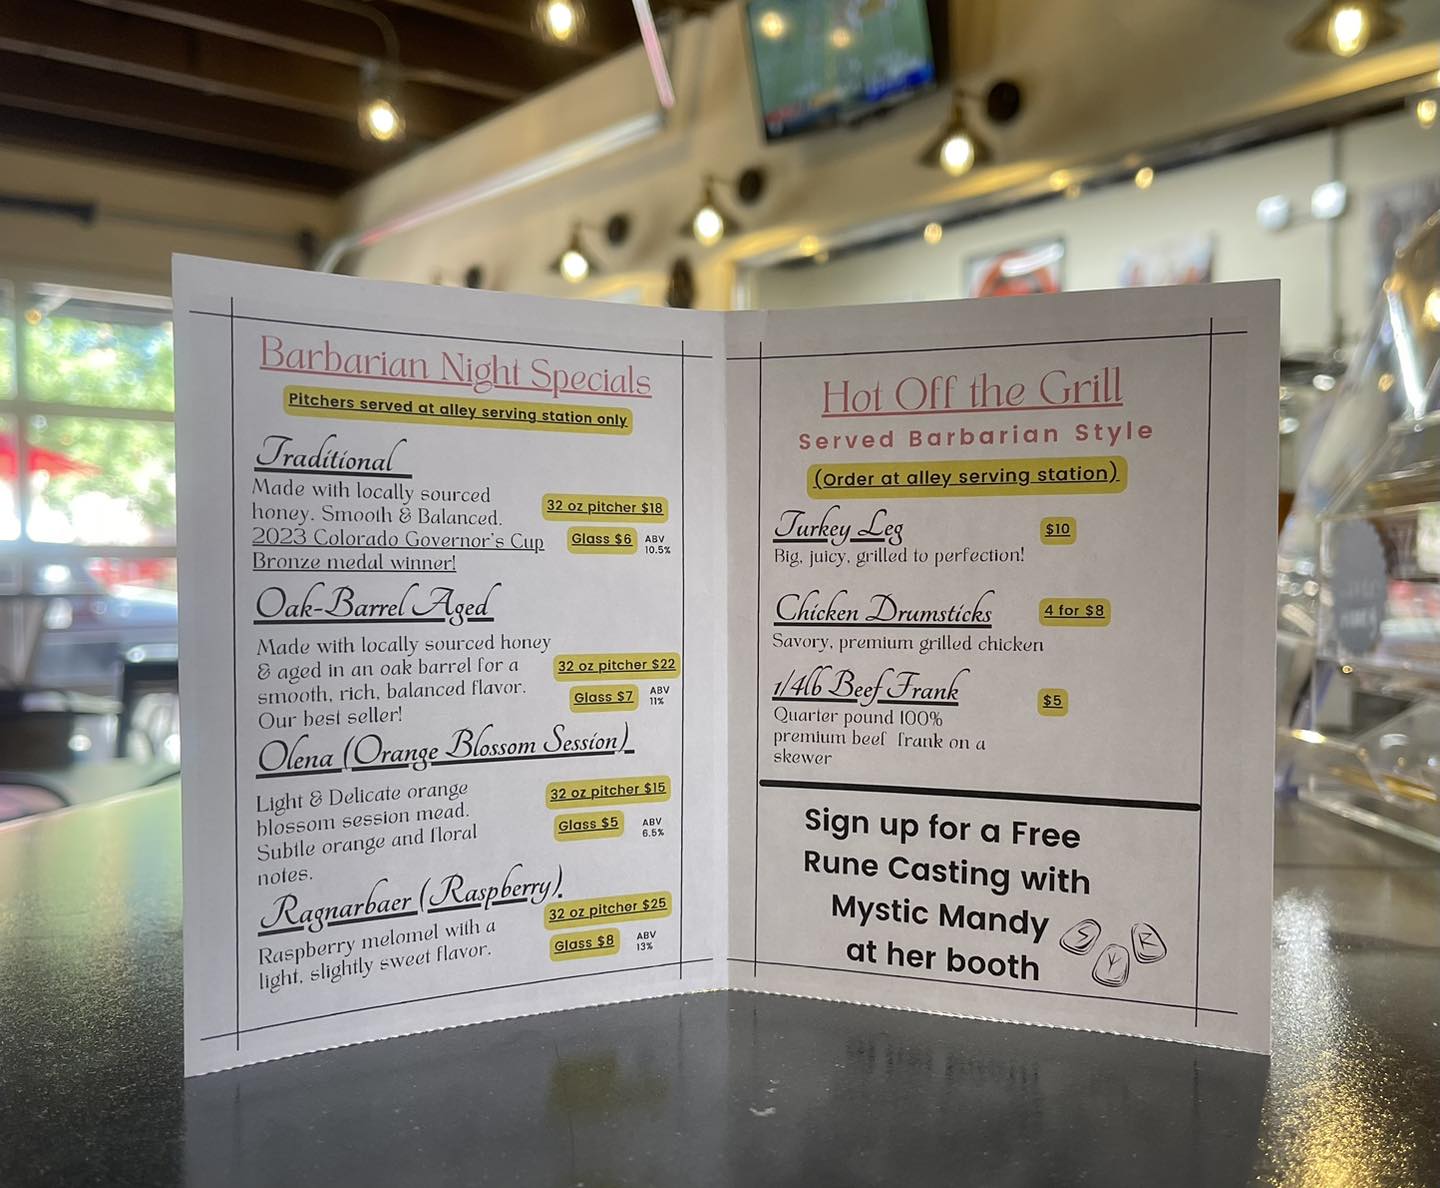 Barbarian Night Specials
Pitchers served at alley serving station only
Traditional
Made with locally sourced
honey. Smooth & Balanced.
2023 Colorado Governor's Cup
Bronze medal winner!
32 oz pitcher $18
Glass $6
ABV
10.5%
Oak-Barrel Aged
Made with locally sourced honey
& aged in an oak barrel for a
smooth, rich, balanced flavor.
Our best seller!
32 oz pitcher $22
Glass $7
ABV
11%
Olena (Orange Blossom Session)
Light & Delicate orange
blossom session mead.
Subtle orange and floral
notes.
32 oz pitcher $15
Glass $5
ABV
6.5%
Ragnarbaer (Raspberry)
Raspberry melomel with a
light, slightly sweet flavor.
32 oz pitcher $25
Glass $8
ABV
13%
Hot Off the Grill
Served Barbarian Style
(Order at alley serving station)
Turkey Leg
$10
Big, juicy, grilled to perfection!
Chicken Drumsticks
4 for $8
Savory, premium grilled chicken
1/4lb Beef Frank
$5
Quarter pound 100%
premium beef frank on a
skewer
Sign up for a Free
Rune Casting with
Mystic Mandy
at her booth